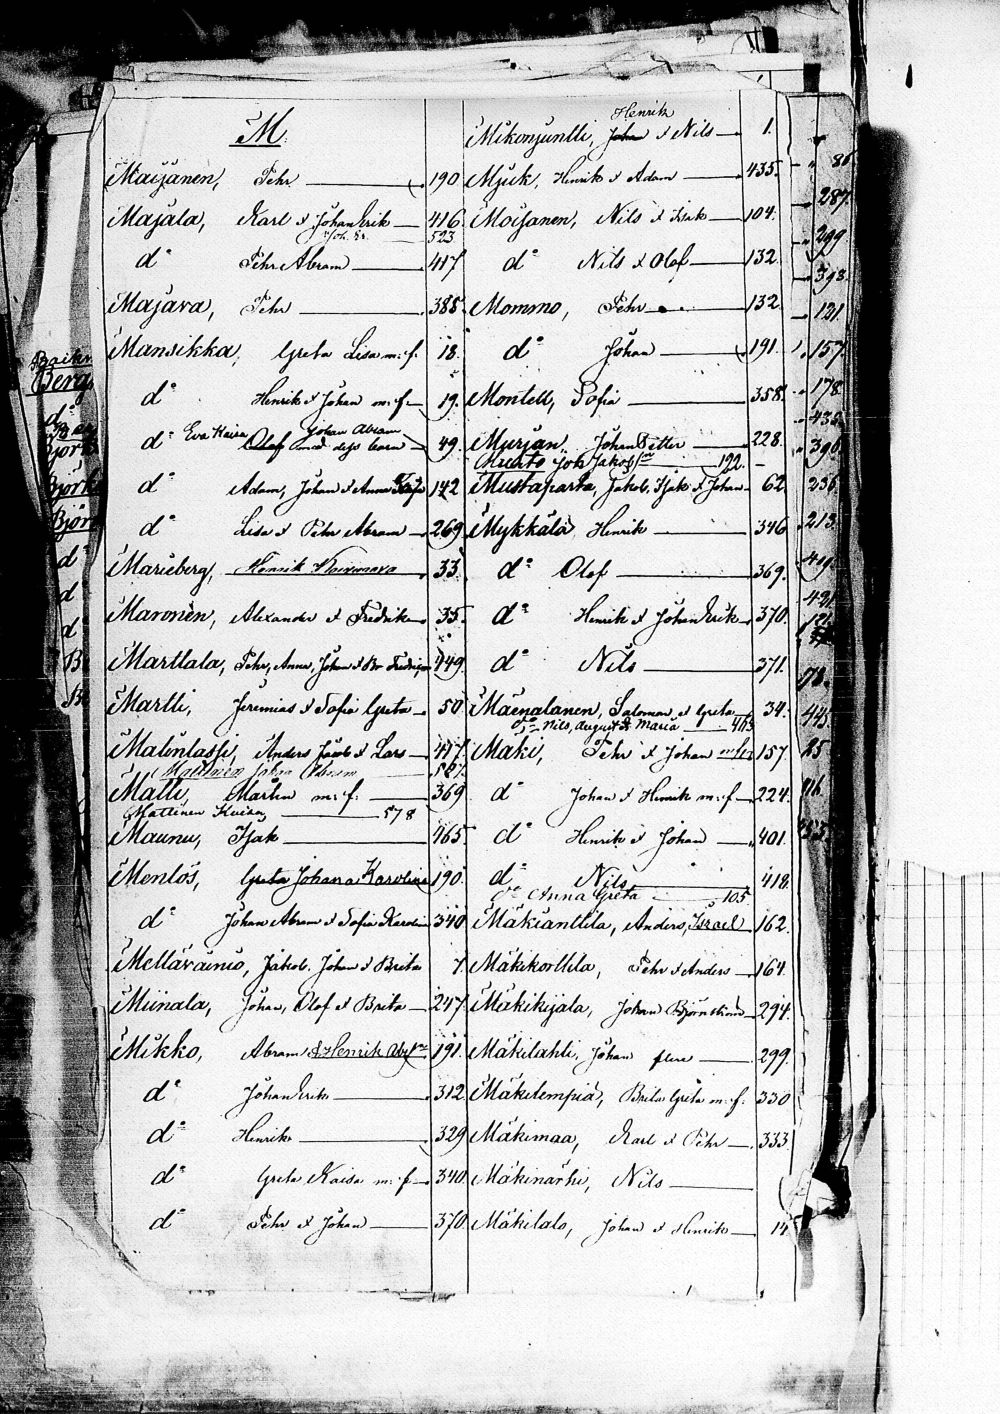 M.
Maijanen, Pehr 190
Majala, Karl & Johan Erik 416.
Joh. Er. 523
d:o Pehr Abram 417
Majava, Pehr 385.
Mansikka, Greta Lisa m: f. 18.
d:o Henrik & Johan m: f. 19.
d:o Eva Kaisa Olof Johan Abram dess barn 49.
d:o Adam, Johan & Anna Kajsa 142
d:o Lisa & Pehr Abram 269
Marieberg, Henrik 33.
Maronen, Alexander & Fredrik 35.
Marttala, Pehr, Anna, Johan & 449.
Martti, Jeremias & Sofia Greta 50
Matinlassi, Anders Jacob & Lars 417.
Mattinen Johan Abram 527.
Matti, Martin m: f. 369
Mattinen Kaisa 578
Maunu, Isak 465.
Menlös, Greta Johana Karolina 190.
d:o Johan Abram & Sofia Karolin 340
Mettävainio, Jakob, Johan & Brita 7.
Miinala, Johan, Olof & Brita 247.
Mikko, Abram & Henrik 191.
d:o Johan Erik 312.
d:o Henrik 329
d:o Greta Kaisa m: f. 340.
d:o Pehr & Johan 370.
Henrik
Mikonjuntti, Johan & Nils 1.
Mjuk, Henrik & Adam 435.
Moijanen, Nils & Isak 104.
d:o Nils & Olof 132
Mommo, Pehr 132
d:o Johan 191.
Montell, Sofia 358.
Murjan, Johan Petter 228.
Muerto Joh Jakob 192.
Mustaparta, Jakob, Isak & Johan 62
Mykkälä, Henrik 346
d:o Olof 369.
d:o Henrik & Johan Erik 370.
d:o Nils 371.
Mäenalanen, Salomon & Greta 34.
d:o Nils, August & Maria 463
Mäki, Pehr & Johan m: fl. 157.
d:o Johan & Henrik m: f. 224.
d:o Henrik & Johan 401.
d:o Nils 418.
d:o Anna Greta 105
Mäkianttila, Anders, Israel 162.
Mäkikorttila, Pehr & Anders 164.
Mäkikyala, Johan Björnström 294.
Mäkilahti, Johan flere 299.
Mäkilempiä, Brita Greta m: f. 330
Mäkimaa, Karl & Pehr 333.
Mäkinärhi, Nils
Mäkitalo, Johan & Henrik 14
86
287.
299
398.
121.
157.
178.
435.
396.
236.
213.
419.
421.
78.
445.
25